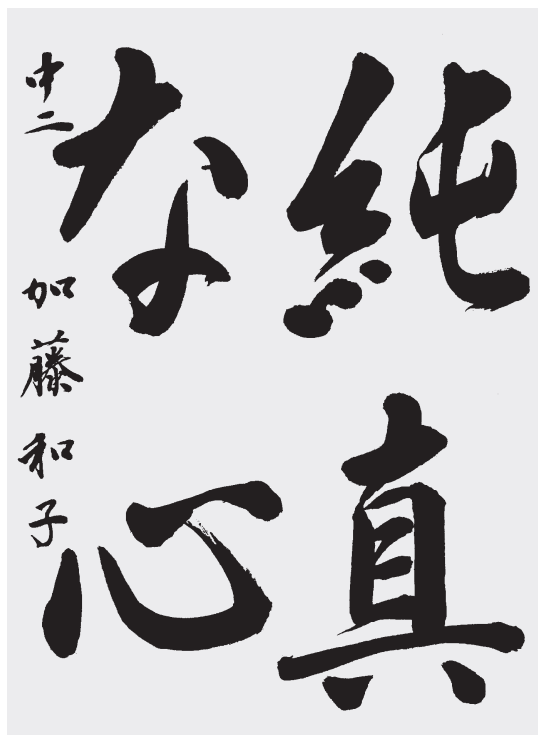 純真
な心
中二 加藤和子